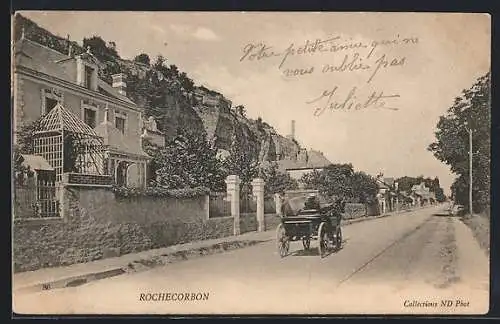 Votre petite amie qui ne
vous oublie pas
Juliette
80
ROCHECORBON
Collections ND Phot